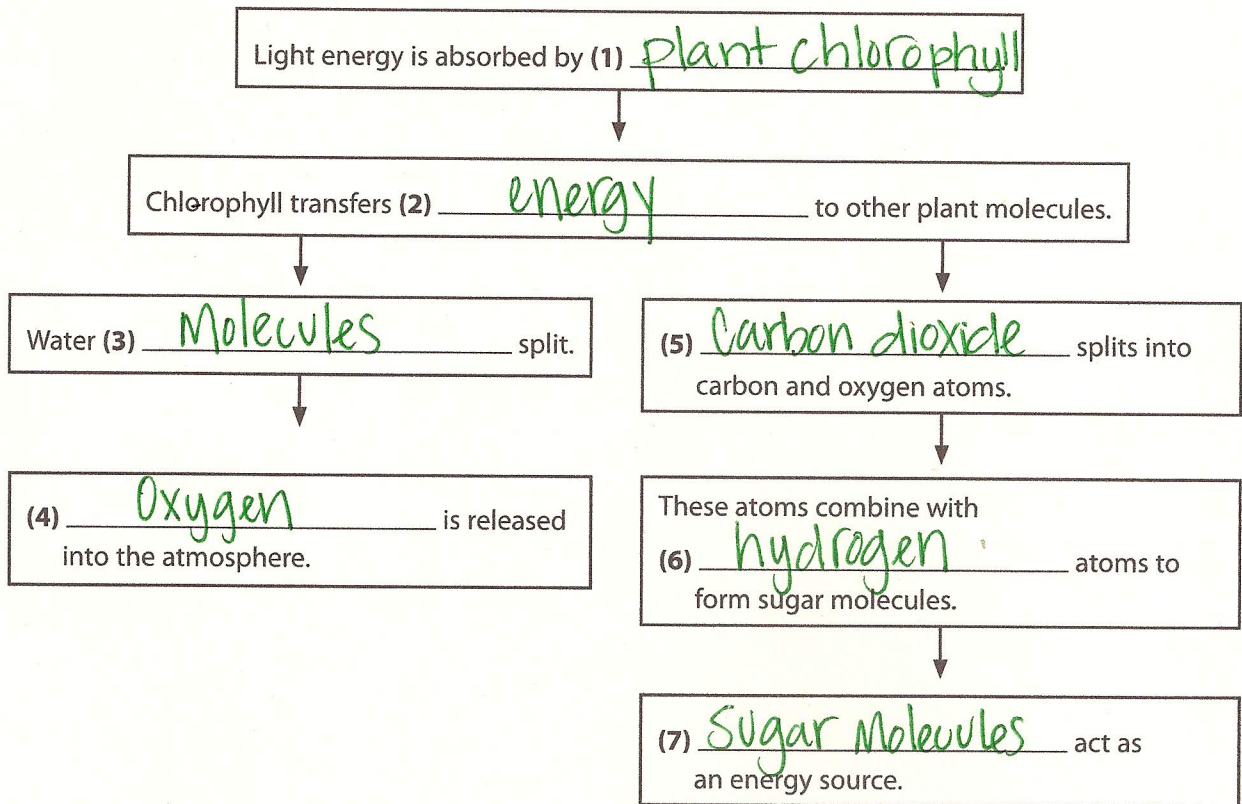 Light energy is absorbed by (1) plant chlorophyll
Chlorophyll transfers (2) energy to other plant molecules.
Water (3) Molecules split.
(4) Oxygen is released
into the atmosphere.
(5) Carbon dioxide splits into
carbon and oxygen atoms.
These atoms combine with
(6) hydrogen atoms to
form sugar molecules.
(7) Sugar Molecules act as
an energy source.